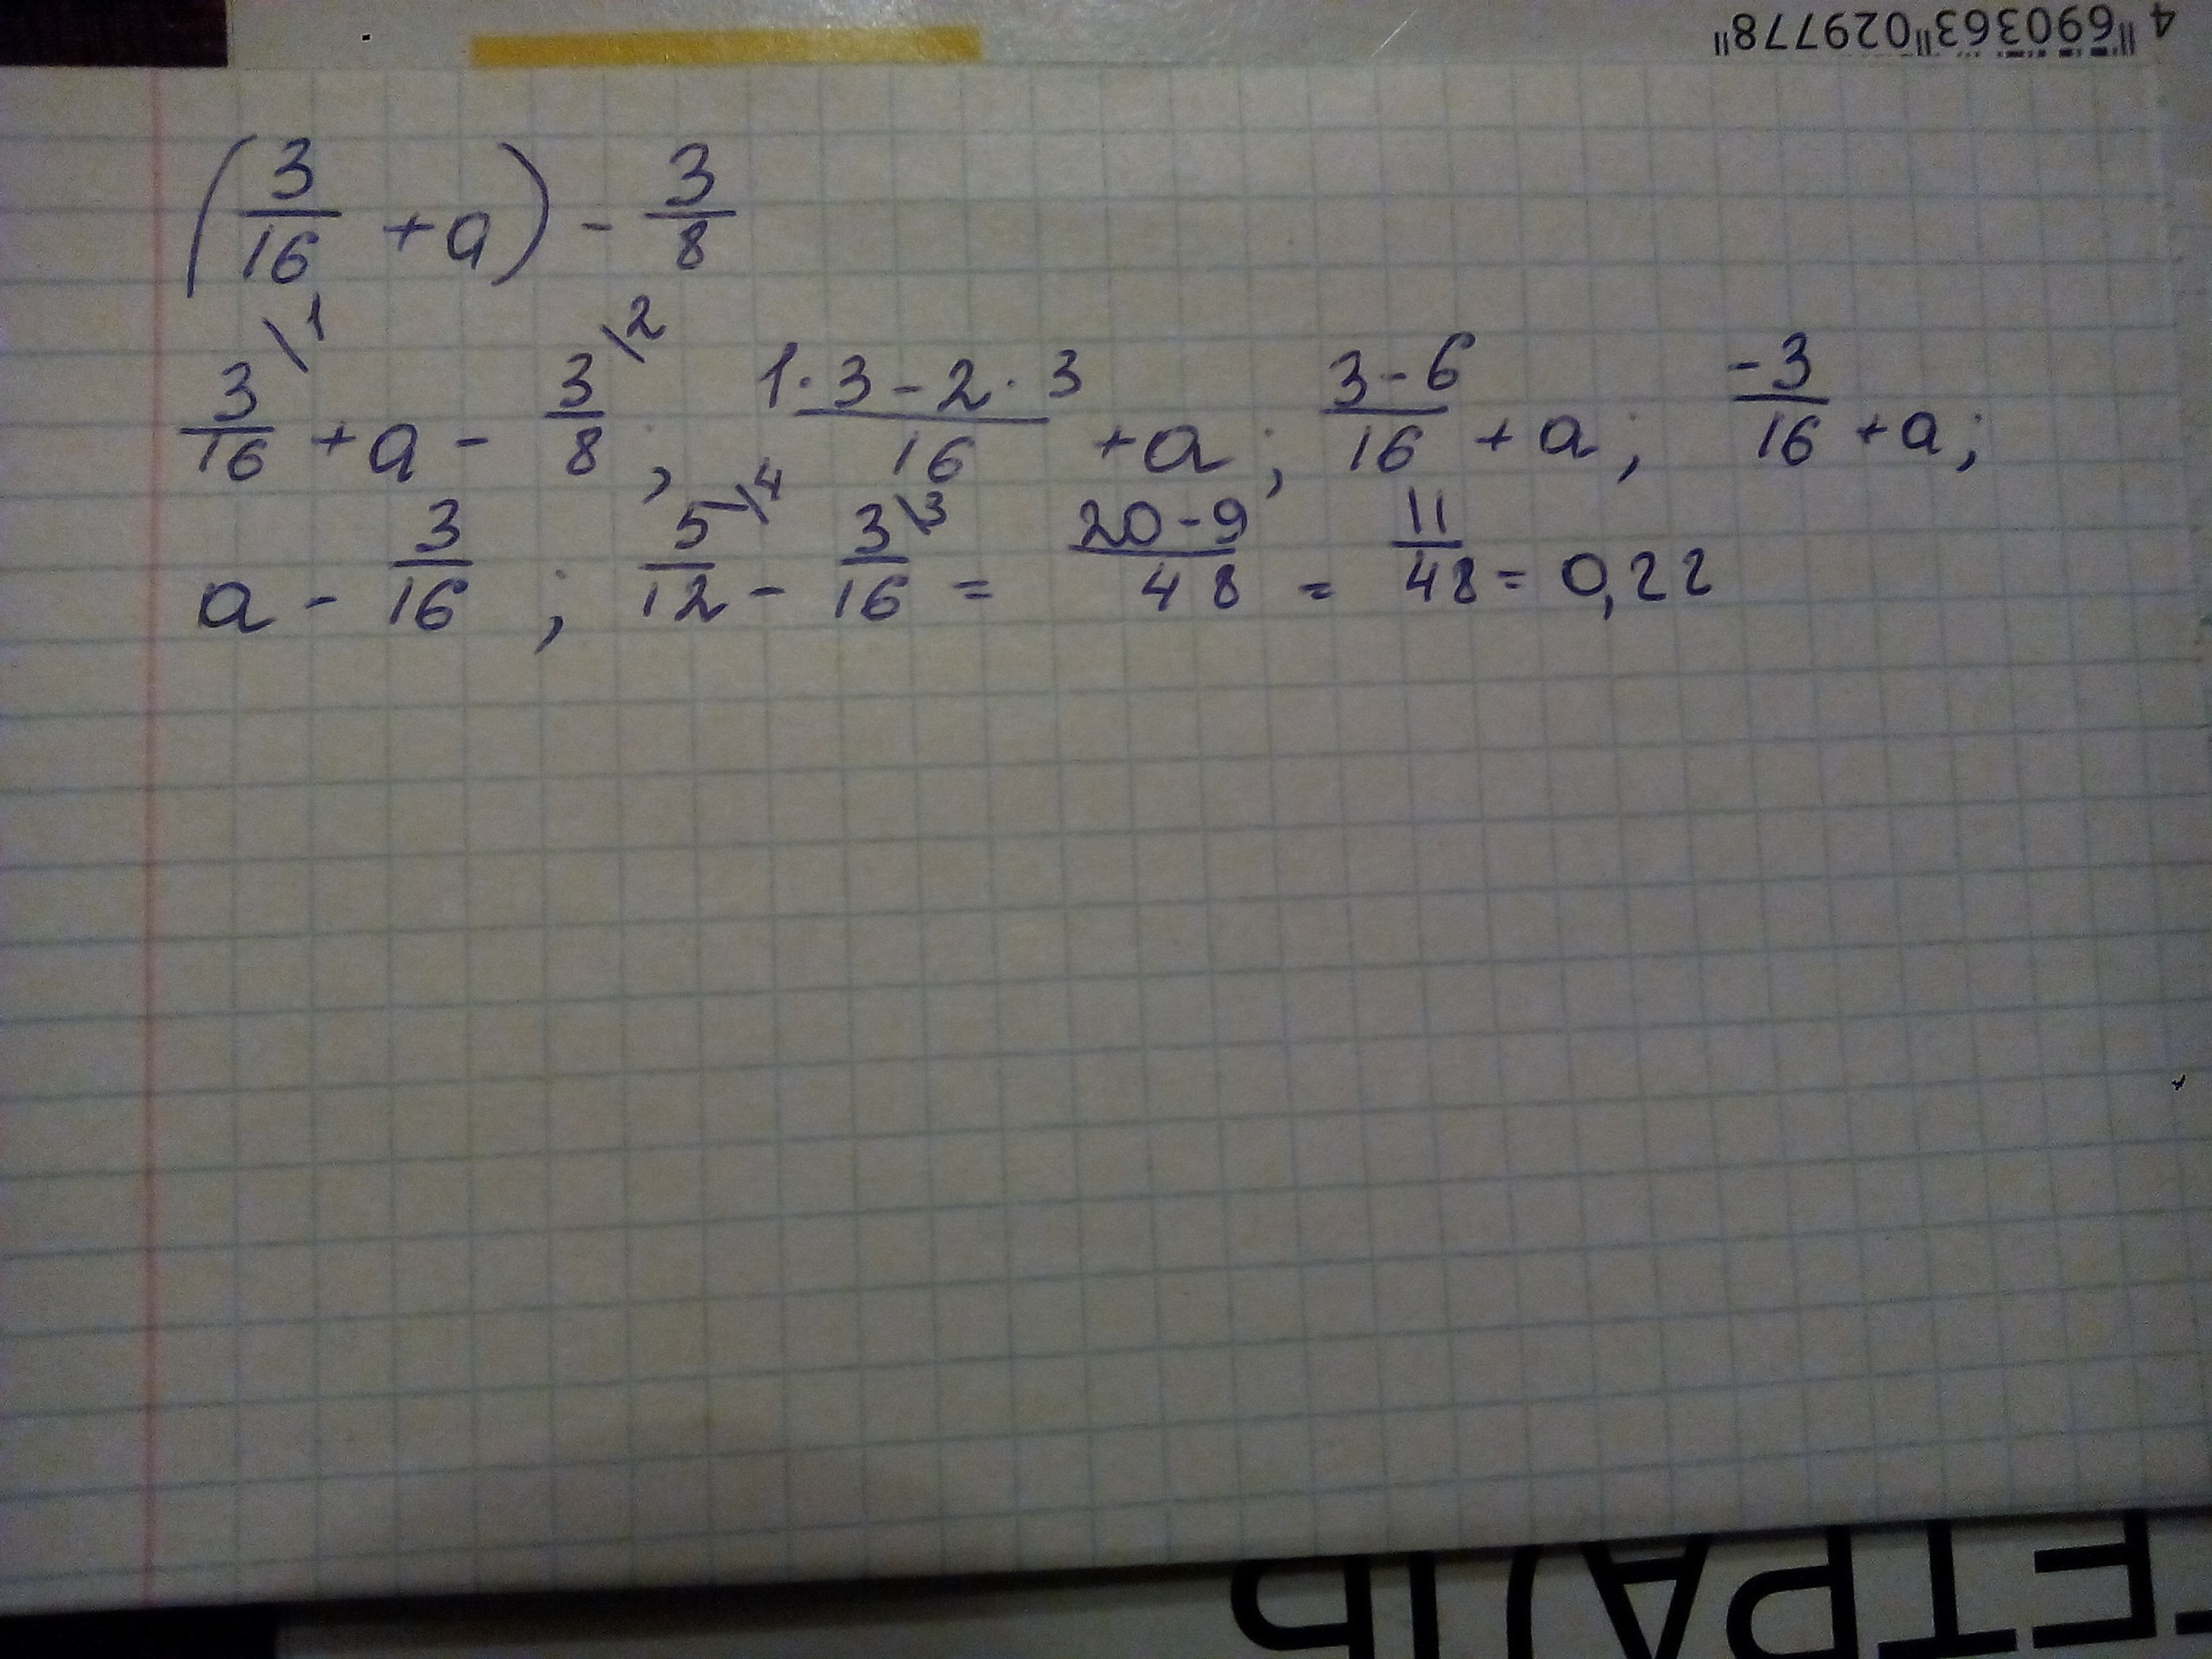 4"690363"029778"
(3/16 + a) - 3/8
3\1/16 + a - 3\2/8; 1·3-2·3/16 + a; 3-6/16 + a; -3/16 + a;
a - 3/16; 5\4/12 - 3\3/16 = 20-9/48 = 11/48 = 0,22
ЕТРАДЬ